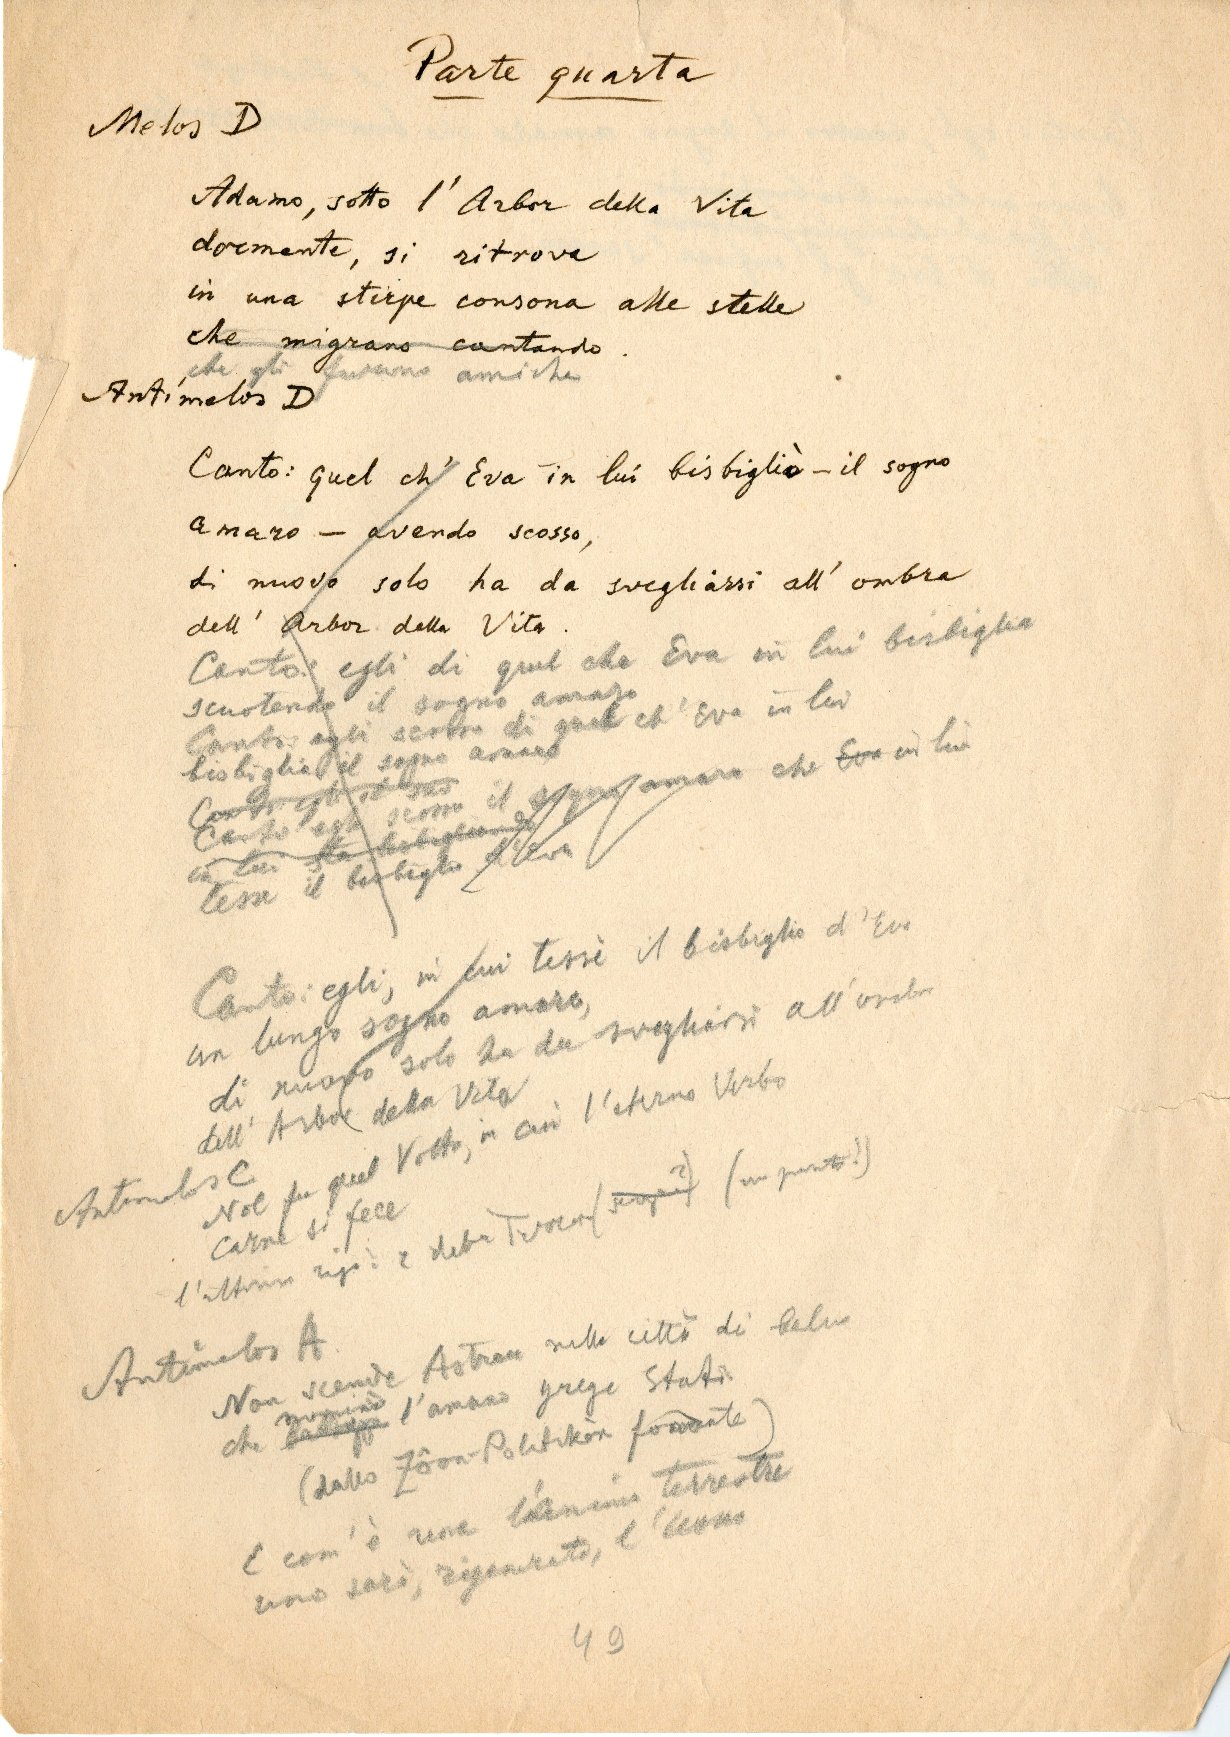 Parte quarta
Melos D
Adamo, sotto l'Arbor della Vita
dormente, si ritrova
in una stirpe consona alle stelle
che migrano cantando.
che gli furono amiche
Antímelos D
Canto: quel ch'Eva in lui bisbigliò – il sogno
amaro – avendo scosso,
di nuovo solo ha da svegliarsi all'ombra
dell'Arbor della Vita.
Canto: egli di quel che Eva in lui bisbiglia
scuotendo il sogno amaro
Canto: egli scosso di quel ch'Eva in lui
bisbiglia il sogno amaro
Canto: egli
Canto egli scosso il sogno amaro che Eva in lui
in lui sta bisbigliando
tesse il bisbiglio d'Eva
Canto: egli, in lui tessè il bisbiglio d'Eva
un lungo sogno amaro,
di nuovo solo ha da svegliarsi all'ombra
dell'Arbor della Vita
Antimelos C
Nol fu quel Volto, in cui l'eterno Verbo
carne si fece
l'ultima riga: e debi (un punto!)
Antímelos A
Non scende Astrea nella città di
che nominò l'umano gregge Stati
(dallo Zôon Politikòn)
E com'è una l'anima terrestre
uno sarà, rigenerato, l'uomo
49